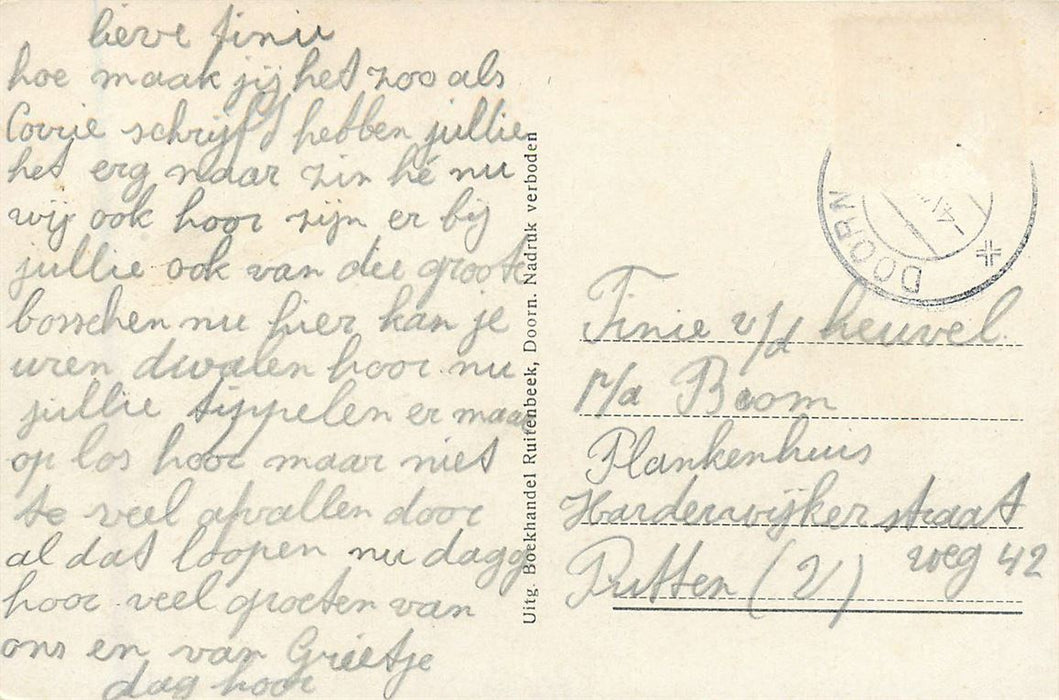 lieve finie
hoe maak jij het zoo als
Corrie schrijft hebben jullie
het erg naar zin hé nu
wij ook hoor zijn er bij
jullie ook van die groote
bosschen nu hier kan je
uren dwalen hoor nu
jullie tippelen er maar
op los hoor maar niet
te veel afvallen door
al dat loopen nu dagg
hoor veel groeten van
ons en van Grietje
dag hoor
Uitg. Boekhandel Ruitenbeek, Doorn. Nadruk verboden
DOORN
Finie v/d heuvel
p/a Boom
Plankenhuis
Harderwijker straat
weg 42
Putten (V)